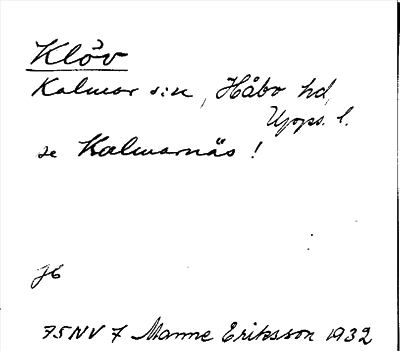 Klöv
Kalmar s:n, Håbo hd,
Upps. l.
se Kalmarnäs!
75NV 7 Manne Eriksson 1932